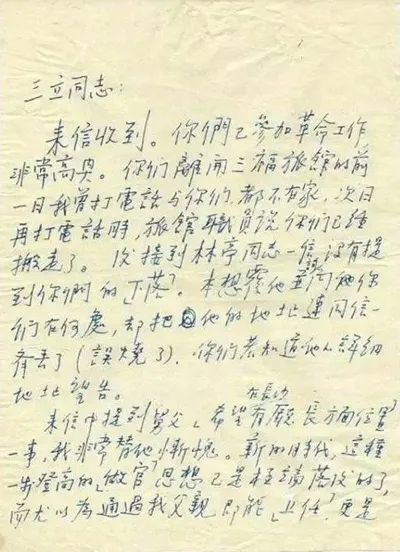 三立同志：
来信收到。你們已参加革命工作
非常高兴。你们離開三福旅館的前
一日我曾打電話与你们，都不在家，次日
再打電話時，旅館職員説你们已經
搬走了。後接到林亭同志一信，没有提
到你們的「下落」。本想覆他並问他你
们在何處，却把他的地址連同信一
齐丢了（誤燒了）。你們若知道他人詳細
地址望告。
来信中提到舅父「希望在長沙有廳長方面位置」
一事，我非常替他慚愧。新的時代，這種
一步登高的「做官」思想已是極端落後的了，
而尤以為通過我父親即能「上任」，更是